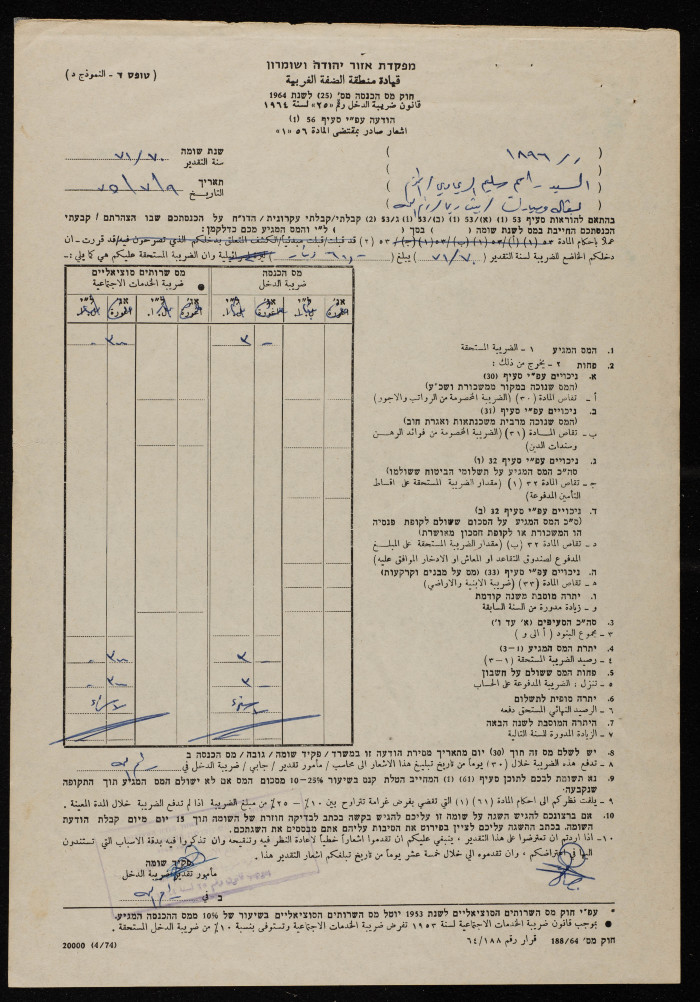 מפקדת אזור יהודה ושומרון
قيادة منطقة الضفة الغربية
(טופס ד - النموذج د)
חוק מס הכנסה מס' (25) לשנת 1964
قانون ضريبة الدخل رقم «٢٥» لسنة ١٩٦٤
הודעה עפ"י סעיף 56 (1)
اشعار صادر بمقتضى المادة ٥٦ «١»
שנת שומה
سنة التقدير
٧١/٧٠
תאריך
التاريخ
٧٥/٧/٩
١٨٩٦
السيد
בהתאם להוראות סעיף 53 (1) (א)/53 (1) (ב)/53 (1) (ג)/53 (2) קבלתי/קבלתי עקרונית/הדו"ח על הכנסתכם שבו הצהרתם / קבעתי
הכנסתכם החייבת במס לשנת שומה ( ) בסך ( ) ל"י והמס המגיע מכם כדלקמן:
عملا باحكام المادة ٥٣ (١) (أ)/٥٣ (١) (ب)/٥٣ (١) (ج)/٥٣ (٢) قد قبلت/قبلت مبدئياً/الكشف المتعلق بدخلكم الذي تصرحون فيه/قد قررت - ان
دخلكم الخاضع لضريبة لسنة التقدير (٧١/٧٠) يبلغ ( دينار وان الضريبة المستحقة عليكم هي كما يلي :-
מס הכנסה
ضريبة الدخل
מס שרותים סוציאליים
ضريبة الخدمات الاجتماعية
אג'
ל"י
אג'
ל"י
אג'
ל"י
אג'
ל"י
1. המס המגיע ١ - الضريبة المستحقة
2. פחות ٢ - يخرج من ذلك :
א. ניכויים עפ"י סעיף (30)
(המס שנוכה במקור ממשכורת ושכ"ע)
أ - تفاص المادة (٣٠) (الضريبة المخصومة من الرواتب والاجور)
ב. ניכויים עפ"י סעיף (31)
(המס שנוכה מרבית משכנתאות ואגרת חוב)
ب - تقاص المادة (٣١) (الضريبة المخصومة من فوائد الرهن
وسندات الدين)
ג. ניכויים עפ"י סעיף 32 (1)
סה"כ המס המגיע על תשלומי הביטוח ששולמו)
ج - تقاص المادة ٣٢ (١) (مقدار الضريبة المستحقة على اقساط
التأمين المدفوعة)
ד. ניכויים עפ"י סעיף 32 (ב)
(ס"כ המס המגיע על הסכום ששולם לקופת פנסיה
הו המשכורת או לקופת חסכון מאושרת)
د - تقاص المادة ٣٢ (ب) (مقدار الضريبة المستحقة على المبلغ
المدفوع لصندوق التقاعد او المعاش او الادخار الموافق عليه)
ה. ניכויים עפ"י סעיף (33) (מס על מבנים וקרקעות)
ه - تقاص المادة (٣٣) (ضريبة الابنية والاراضي)
ו. יתרה מוסבת משנה קודמת
و - زيادة مدورة من السنة السابقة
3. סה"כ הסעיפים (א' עד ו')
٣ - مجموع البنود (أ الى و)
4. יתרת המס המגיע (1-3)
٤ - رصيد الضريبة المستحقة (١-٣)
5. פחות המס ששולם על חשבון
٥ - تنزل : الضريبة المدفوعة على الحساب
6. יתרה סופית לתשלום
٦ - الرصيد النهائي المستحق دفعه
7. היתרה המוסבת לשנה הבאה
٧ - الزيادة المدورة للسنة التالية
8. יש לשלם מס זה תוך (30) יום מתאריך מסירת הודעה זו במשרד / פקיד שומה / גובה / מס הכנסה ב
٨ - تدفع هذه الضريبة خلال (٣٠) يوماً من تاريخ تبليغ هذا الاشعار الى محاسب / مأمور تقدير / جابي / ضريبة الدخل في
9. נא תשומת לבכם לתוכן סעיף (61) (1) המחייב הטלת קנס בשיעור 10-25% מסכום המס אם לא ישולם המס המגיע תוך התקופה
שנקבעה.
٩ - يلفت نظركم الى احكام المادة (٦١) (١) التي تقضي بفرض غرامة تتراوح بين ١٠٪ - ٢٥٪ من مبلغ الضريبة اذا لم تدفع الضريبة خلال المدة المعينة .
10. אם ברצונכם להגיש השגה על שומה זו עליכם להגיש בקשה בכתב לבדיקה חוזרת של השומה תוך 15 יום מיום קבלת הודעת
השומה. בכתב ההשגה עליכם לציין בפירוט את הסיבות עליהם אתם מבססים את השגתכם.
١٠ - اذا اردتم ان تعترضوا على هذا التقدير ، ينبغي عليكم ان تقدموا اشعاراً خطياً لاعادة النظر فيه وتنقيحه وان تذكروا فيه بدقة الاسباب التي تستندون
اليها في اعتراضكم ، وان تقدموه الي خلال خمسة عشر يوماً من تاريخ تبلغكم اشعار التقدير هذا .
פקיד שומה
مأمور تقدير ضريبة الدخل
ב في
* עפ"י חוק מס השרותים הסוציאליים לשנת 1953 יוטל מס השרותים הסוציאליים בשיעור של 10% ממס ההכנסה המגיע.
● بموجب قانون ضريبة الخدمات الاجتماعية لسنة ١٩٥٣ تفرض ضريبة الخدمات الاجتماعية وتستوفى بنسبة ١٠٪ من ضريبة الدخل المستحقة .
חוק מס' 188/64 قرار رقم ٦٤/١٨٨
20000 (4/74)